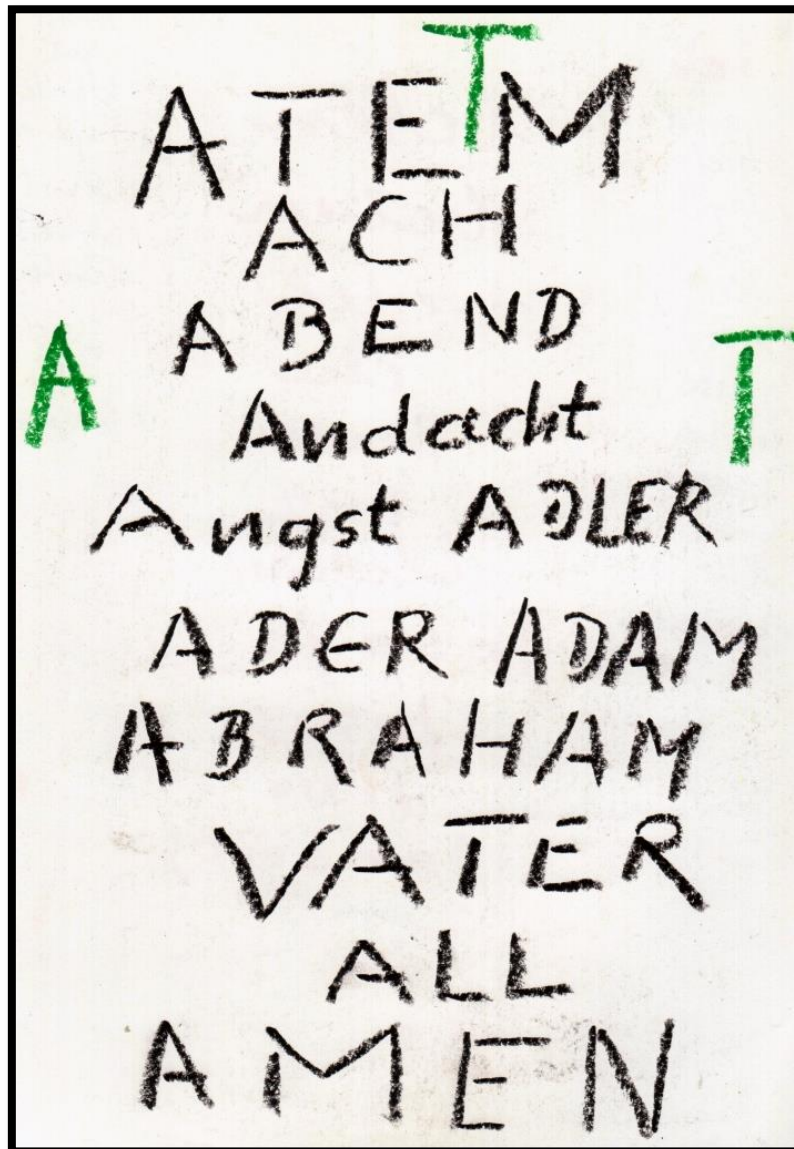 T
ATEM
ACH
ABEND
A
T
Andacht
Angst ADLER
ADER ADAM
ABRAHAM
VATER
ALL
AMEN